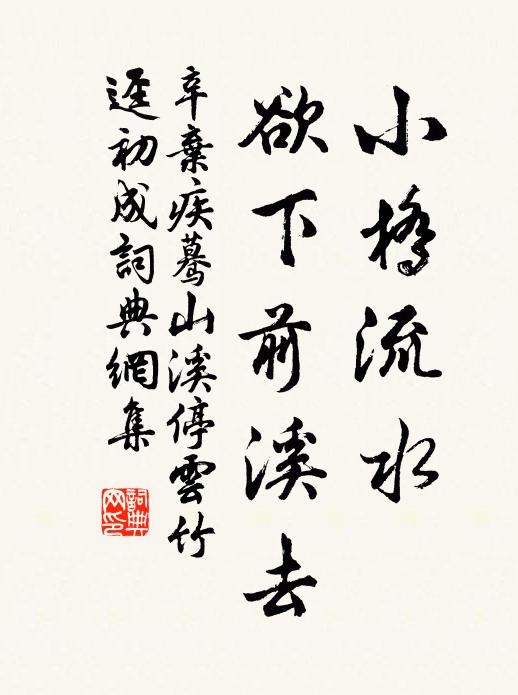 小橋流水
欲下前溪去
辛棄疾驀山溪停雲竹
逕初成詞典網集
詞典網印